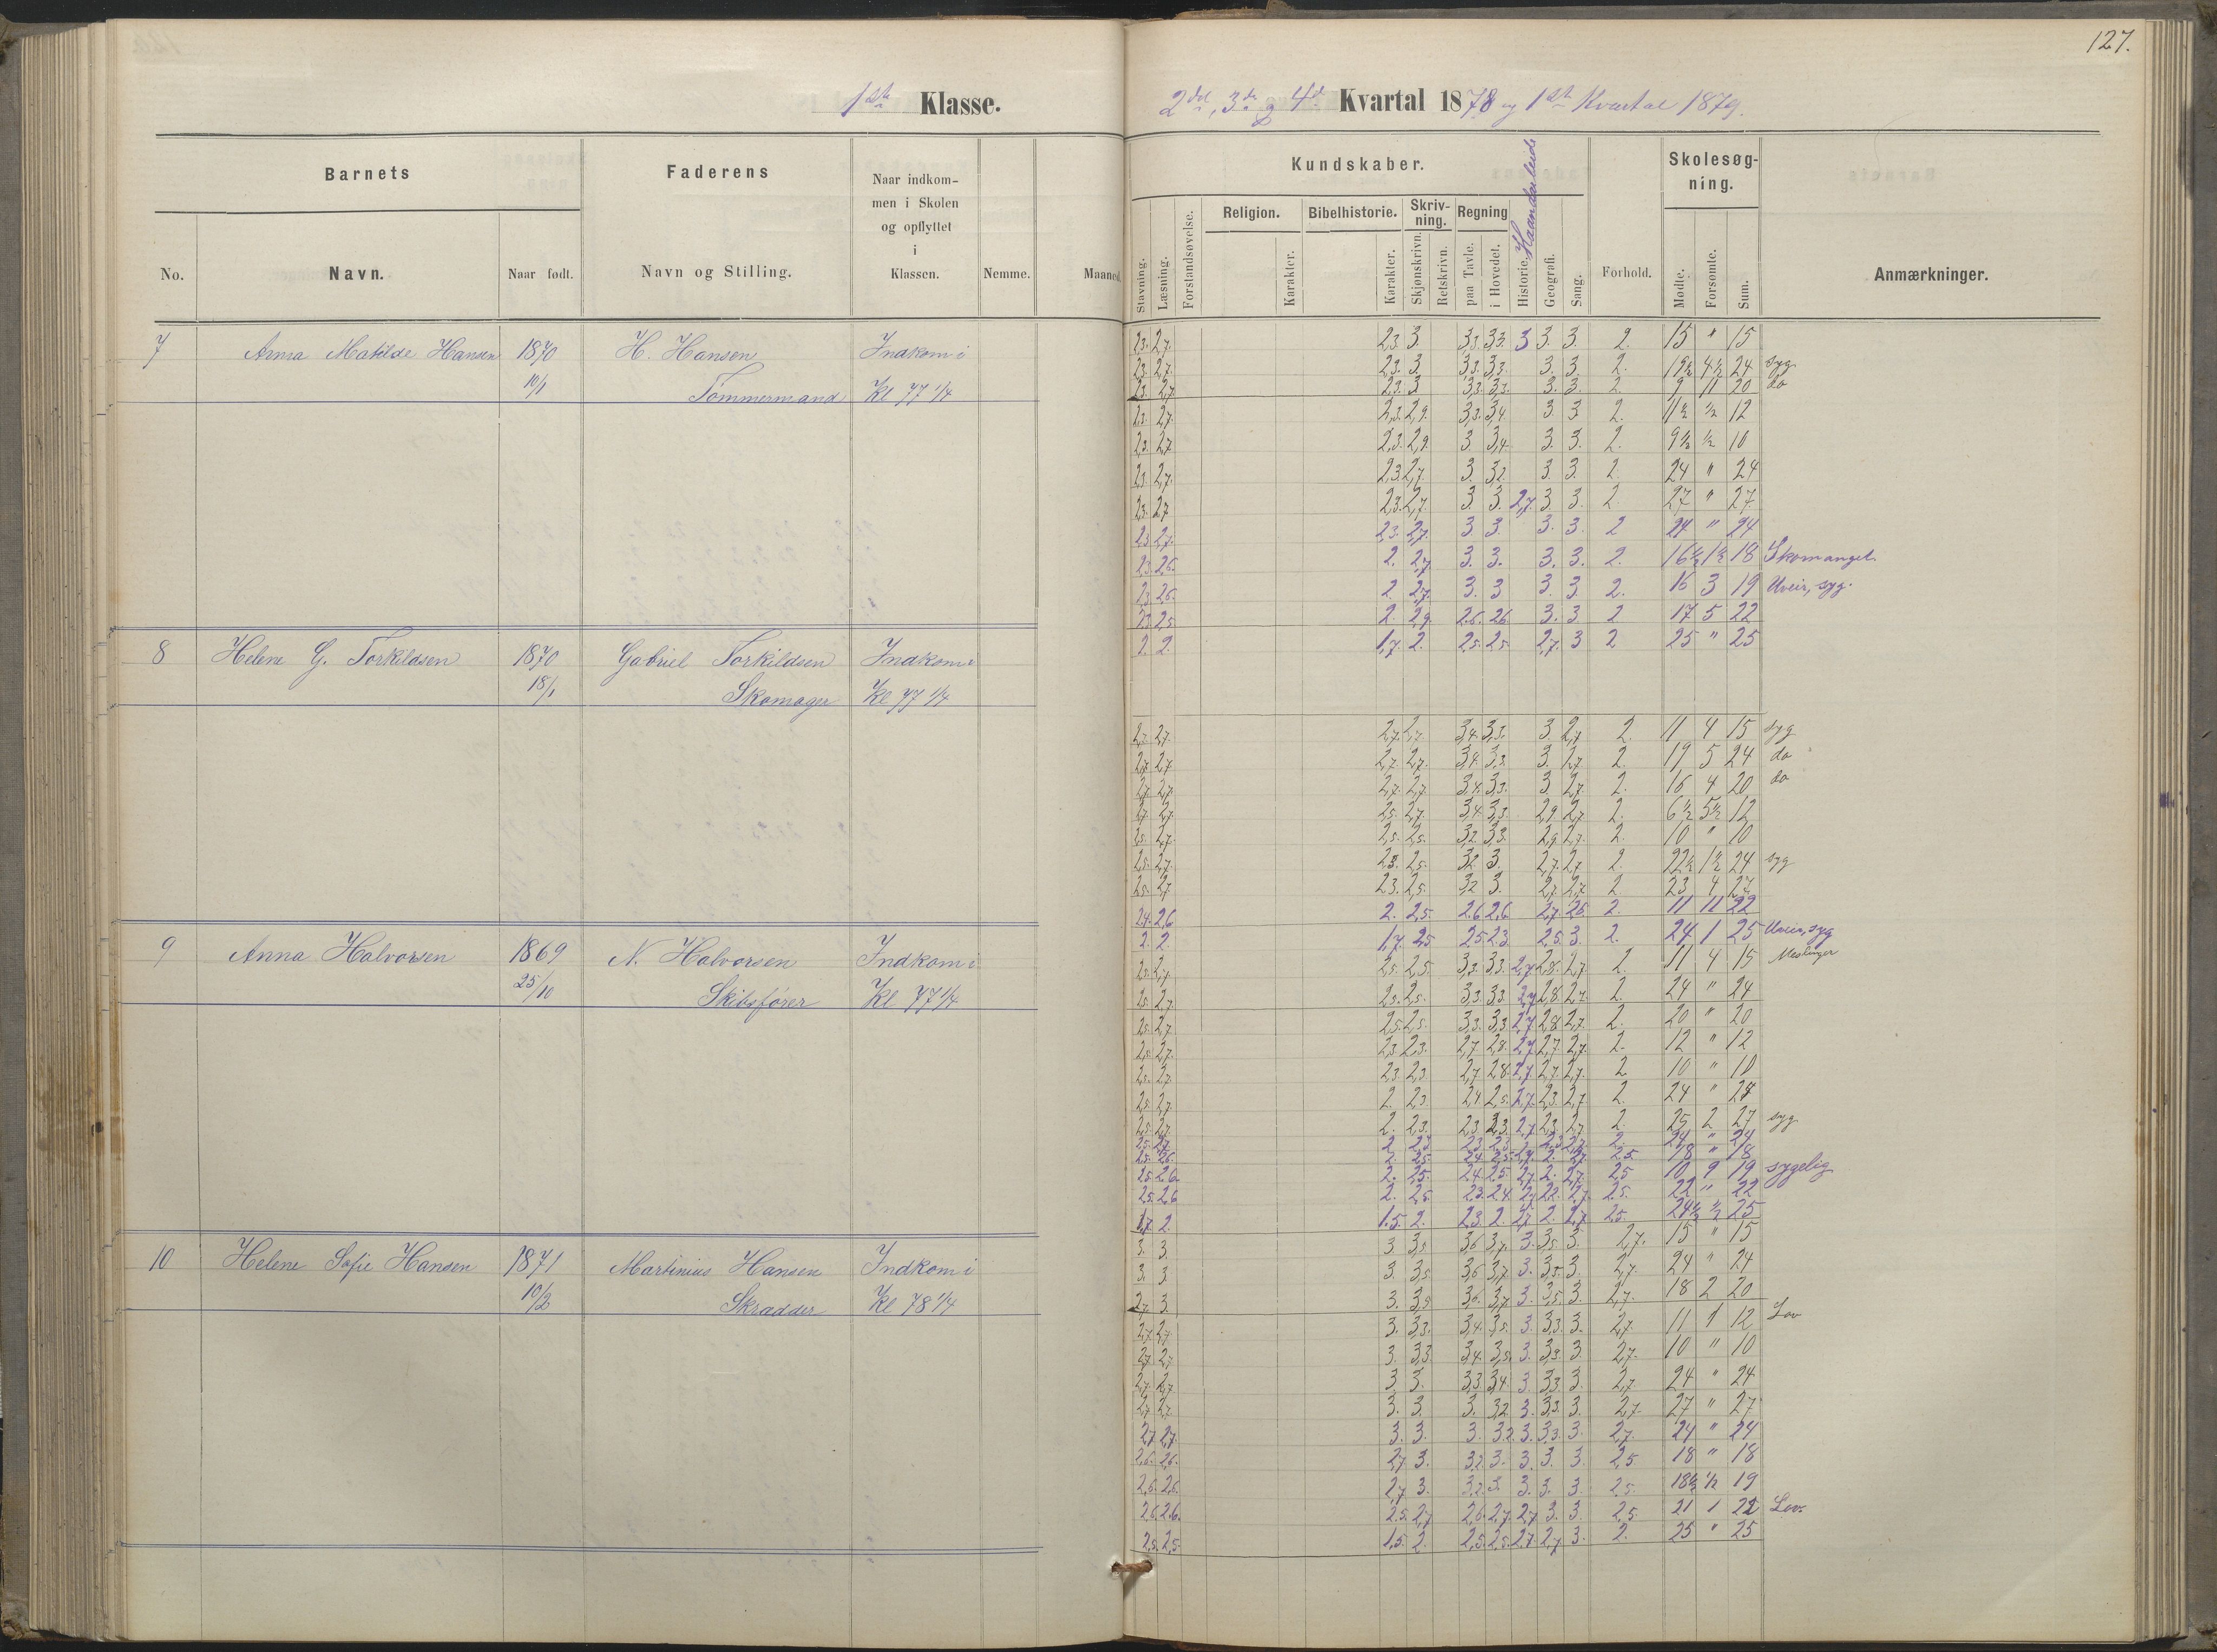 127.
1ste Klasse.
2det, 3de og 4de Kvartal 1878 og 1ste Kvartal 1879.
Barnets
Faderens
Naar indkommen i Skolen og opflyttet i Klassen.
Nemme.
Maaned.
No.
Navn.
Naar født.
Navn og Stilling.
Kundskaber.
Stavning.
Læsning.
Forstandsøvelse.
Religion.
Karakter.
Bibelhistorie.
Karakter.
Skrivning.
Skjønskrivn.
Retskrivn.
Regning
paa Tavle.
i Hovedet.
Historie.
Haandarbeide
Geografi.
Sang.
Forhold.
Skolesøgning.
Mødte.
Forsømte.
Sum.
Anmærkninger.
7 Anna Matilde Hansen 1870 H. Hansen Indkom i
10/1 Tømmermand Kl 77 1/4
2,3. 2,7. 2,3. 3. 3,3. 3,3. 3 3. 3. 2. 15 " 15
2,3. 2,7. 2,3. 3. 3,3. 3,3. 3. 3. 2. 19½ 4½ 24 syg
2,3. 2,7. 2,3. 3 3,3. 3,3. 3. 3. 2. 9 11 20 do
2,3. 2,7. 2,3. 2,9. 3,3. 3,4. 3. 3 2. 11½ ½ 12
2,3. 2,7. 2,3. 2,9. 3 3,4. 3. 3. 2. 9½ ½ 10
2,3. 2,7. 2,3. 2,7. 3. 3,2. 3. 3. 2. 24 " 24
2,3. 2,7 2,3. 2,7. 3. 3. 2,7. 3 3. 2. 27 " 27
2,3. 2,7. 2,3. 2,7. 3 3. 3. 3. 2 24 " 24
2,3. 2,5. 2. 2,7 3. 3. 3. 3. 2. 16½ 1½ 18 Skomangel.
2,3. 2,5. 2. 2,7. 3. 3 3. 3. 2. 16 3 19 Uveir, syg.
2,3. 2,5. 2. 2,9. 2,6. 2,6. 3. 3 2 17 5 22
2. 2. 1,7. 2. 2,5. 2,5. 2,7. 3 2 25 " 25
8 Helene G. Torkildsen 1870 Gabriel Torkildsen Indkom i
18/1 Skomager Kl 77 1/4
2,7. 2,7. 2,7. 2,7. 3,4. 3,3. 3. 2,7 2. 11 4 15 syg
2,7. 2,7. 2,7. 2,7. 3,4. 3,3. 3. 2,7. 2. 19 5 24 do
2,7. 2,7. 2,7. 2,7. 3,4. 3,3. 3 2,7. 2. 16 4 20 do
2,7. 2,7. 2,5. 2,7. 3,4 3,3. 2,9 2,7 2. 6½ 5½ 12
2,5. 2,7. 2,5. 2,5. 3,2 3,3. 2,9 2,7. 2. 10 " 10
2,5. 2,7. 2,3. 2,5. 3,2 3. 2,7. 2,7. 2. 22½ 1½ 24 syg
2,5. 2,7. 2,3. 2,5. 3,2 3. 2,7. 2,7. 2 23 4 27
2,4. 2,6 2. 2,5. 2,6 2,6. 2,7. 2,5 2. 11 11 22
2. 2. 1,7. 2,5 2,5 2,3 2,5. 3. 2. 24 1 25 Uveir, syg
9 Anna Halvorsen 1869 N. Halvorsen Indkom i
25/10 Skibsfører Kl 77 1/4
2,5. 2,7. 2,5. 2,5. 3,3. 3,3. 2,7. 2,8. 2,7. 2. 11 4 15 Meslinger
2,5. 2,7. 2,5. 2,5. 3,3. 3,3. 2,7 2,8. 2,7. 2. 24 " 24
2,5. 2,7. 2,5. 2,5. 3,3. 3,3 2,7 2,8. 2,7. 2. 20 " 20
2,5. 2,7. 2,3 2,3. 2,7. 2,8. 2,7. 2,7. 2,7. 2. 12 " 12
2,5. 2,7. 2,3 2,3 2,7. 2,8. 2,7. 2,7. 2,7. 2 10 " 10
2,5. 2,7. 2. 2,3 2,4 2,5. 2,7. 2,3. 2,7. 2. 24 " 24
2,5. 2,7. 2. 2,3. 2,3 2,3. 2,7. 2,3. 2,7 2. 25 2 27 syg
2,5. 2,7. 2 2,3. 2,3 2,3 2,3 2,7. 2. 24 " 24
2,5. 2,6. 2. 2,5. 2,4 2,5. 2,7. 2. 2,7. 2,5. 18 " 18
2,5. 2,6. 2. 2,5. 2,4 2,5. 2,7. 2. 2,7. 2,5 10 9 19 sygelig
2,5. 2,6 2. 2,5. 2,3. 2,4. 2,7 2,2. 2,7. 2,5. 22 " 22
1,7. 2. 1.5. 2. 2,3. 2. 2,7. 2. 2,7 2,5. 24½ ½ 25
10 Helene Sofie Hansen 1871 Martinius Hansen Indkom i
10/2 Skrædder Kl 78 1/4
3. 3. 3 3,5 3,6 3,7. 3. 3,5. 3. 2,7. 15 " 15
3. 3 3. 3,5. 3,6. 3,7 3. 3,5. 3. 2,7. 24 " 24
2,7. 3. 3. 3,5 3,6. 3,7. 3. 3,5. 3. 2,7. 18 2 20
2,7. 2,7. 3. 3,3. 3,4. 3,5. 3. 3,3. 3. 2,7. 11 1 12 Lov
2,7. 2,7. 3. 3,3. 3,4. 3,5. 3. 3,3 3. 2,7. 10 " 10
2,7. 2,7. 3 3. 3,3 3,4. 3. 3,3. 3. 2,7. 24 " 24
2,7. 2,7. 3. 3. 3. 3,2 3. 3,3. 3. 2,7. 27 " 27
2,7. 2,7. 3. 3. 3. 3,2. 3. 3,3. 3. 2,7. 24 " 24
2,6. 2,6. 2,7 3. 3,2 3. 3. 3. 3. 2,5 18 " 18
2,6. 2,6. 2,7 3. 3,2. 3. 3. 3. 3. 2,5. 18½ ½ 19
2,6. 2,6. 2,5. 2,7 2,6. 2,7. 2,7 3. 3. 2,5. 21 1 22 Lov.
2,5. 2,5. 1,5. 2. 2,5. 2,5. 2,7. 2,7 3. 2. 25 " 25